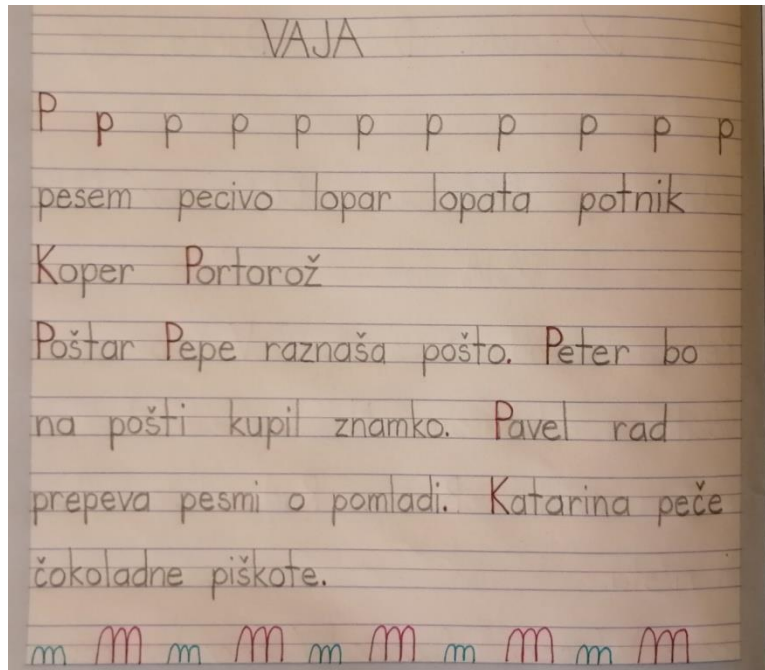 VAJA
P p p p p p p p p p p
pesem pecivo lopar lopata potnik
Koper Portorož
Poštar Pepe raznaša pošto. Peter bo
na pošti kupil znamko. Pavel rad
prepeva pesmi o pomladi. Katarina peče
čokoladne piškote.
m m m m m m m m m m